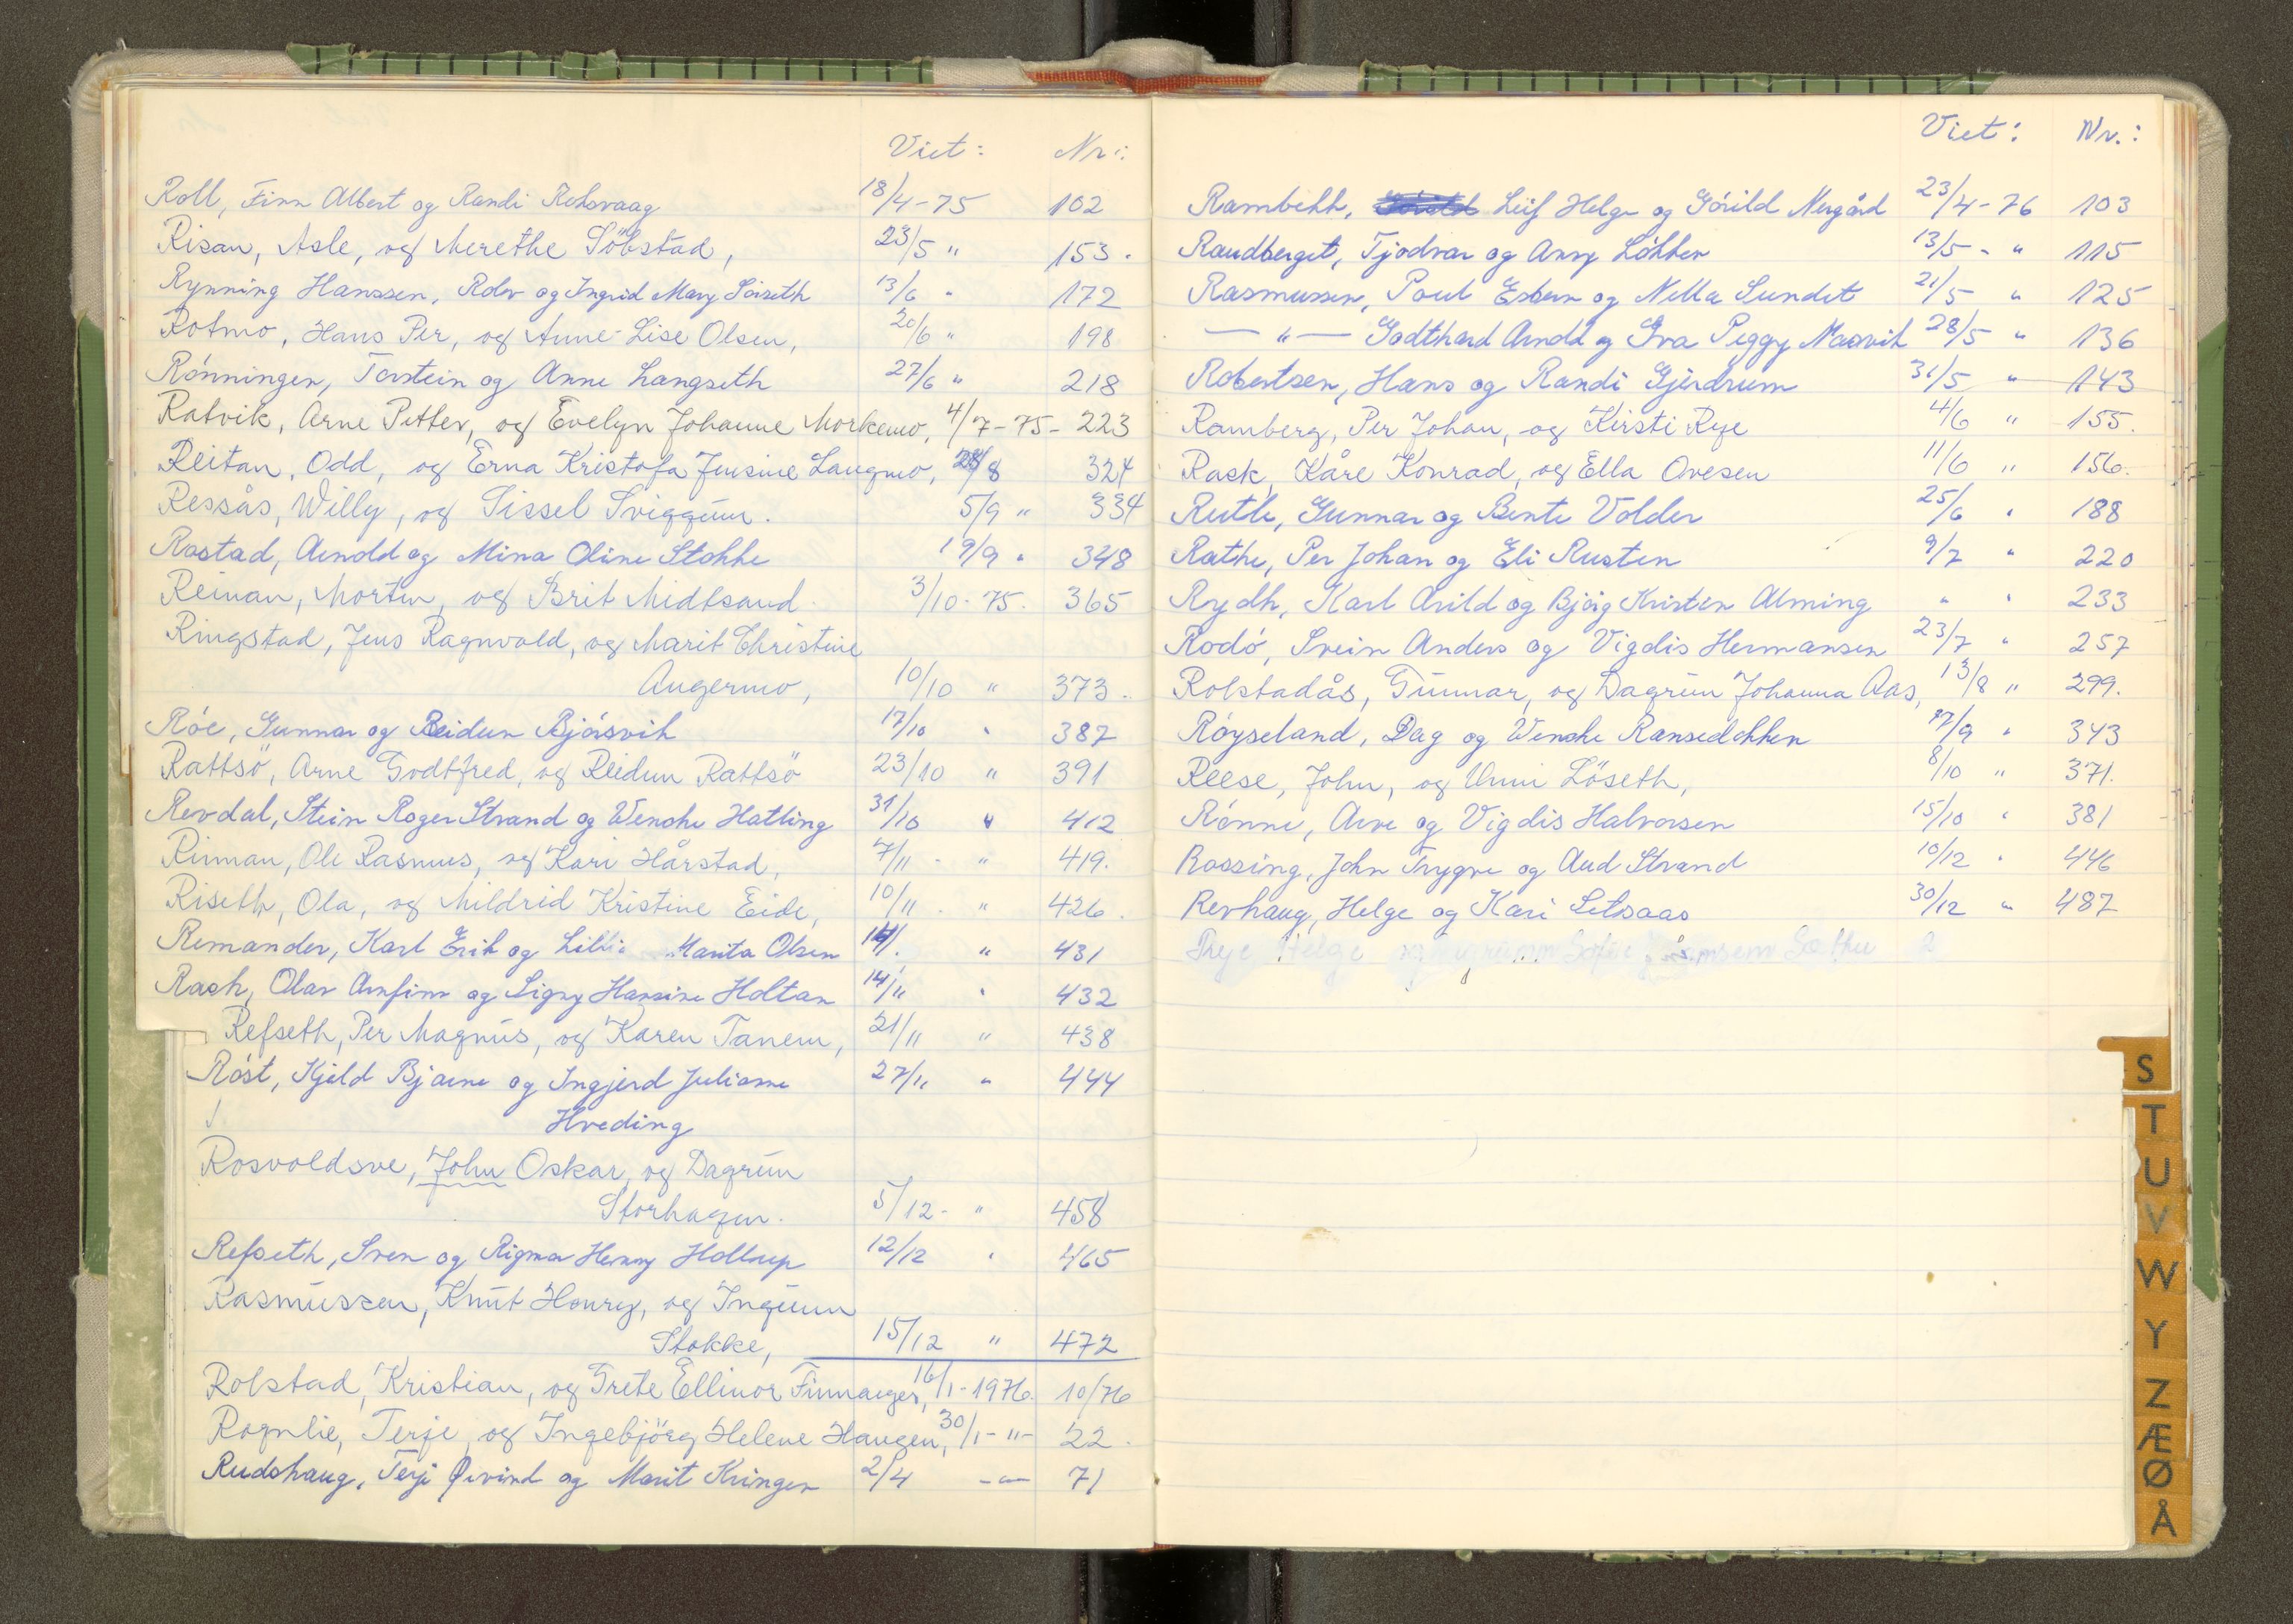 Viet: Nr.:
Roll, Finn Albert og Randi Roksvaag 18/4-75 102
Risan, Asle, og Merethe Söbstad, 23/5 " 153.
Rynning Hanssen, Rolv og Ingrid Mary Sörseth 13/6 " 172
Rotmo, Hans Per, og Anne-Lise Olsen, 20/6 " 198
Rónningen, Torstein og Anne Langseth 27/6 " 218
Ratvik, Arne Petter, og Evelyn Johanne Morkemo, 4/7-75- 223
Reitan, Odd, og Erna Kristofa Jensine Langmo, 28/8 324
Ressås, Willy, og Sissel Sviggum. 5/9 " 334
Rostad, Arnold og Mina Oline Stokke 19/9 " 348
Reinan, Morten, og Brit Midtsand. 3/10-75. 365
Ringstad, Jens Ragnvald, og Marit Christine
Angermo, 10/10 " 373.
Róe, Gunnar og Reidun Bjórsvik 17/10 " 387
Rattsö, Arne Godtfred, og Reidun Rattsö 23/10 " 391
Revdal, Stein Roger Strand og Wenche Hatling 31/10 " 412
Rinnan, Ole Rasmus, og Kari Hårstad, 7/11 - " 419.
Riseth, Ola, og Mildrid Kristine Eide, 10/11. " 426.
Remander, Karl Erik og Marita Olsen 14/. " 431
Rask, Olav Arnfinn og Signy Hansine Holtan 14/11 " 432
Refseth, Per Magnus, og Karen Tanem, 21/11 " 438
Róst, Kjeld Bjarne og Ingjerd Julianne 27/11 " 444
Hveding
Rosvoldsve, John Oskar, og Dagrun
Storhagen. 5/12- " 458
Refseth, Sven og Rigmor Henny Hollup 12/12 " 465
Rasmussen, Knut Henry, og Ingunn
Stokke, 15/12 " 472
Rolstad, Kristian, og Grete Ellinor Finnanger, 16/1-1976. 10/76
Rognlie, Terje, og Ingebjörg Helene Haugen, 30/1-"- 22.
Rudshaug, Terje Øivind og Marit Kringen 2/4 -"- 71
Viet: Nr.:
Rambekk, Leif Helge og Górild Nergård 23/4-76 103
Raudberget, Tjodvar og Anny Lökken 13/5- " 115
Rasmussen, Poul Esben og Nella Sundet 21/5 " 125
— " — Godthard Arnold og Eva Peggy Naavik 28/5 " 136
Robertsen, Hans og Randi Gjerdrum 31/5 " 143
Ramberg, Per Johan, og Kirsti Rye 4/6 " 155.
Rask, Kåre Konrad, og Ella Ovesen 11/6 " 156.
Ruth, Gunnar og Bente Volder 25/6 " 188
Rathe, Per Johan og Eli Rusten 9/7 " 220
Rydh, Karl Arild og Bjórg Kristen Alming " " 233
Rodó, Svein Anders og Vigdis Hermansen 23/7 " 257
Rolstadås, Gunnar, og Dagrun Johanna Aas, 13/8 " 299.
Róyseland, Dag og Wenche Ransedokken 17/9 " 343
Reese, John, og Unni Löseth, 8/10 " 371.
Rónne, Arve og Vigdis Halvorsen 15/10 " 381
Rossing, John Trygve og Aud Strand 10/12 " 446
Revhaug, Helge og Kari Setsaas 30/12 " 487
S
T
U
V
W
Y
Z
Æ
Ø
Å